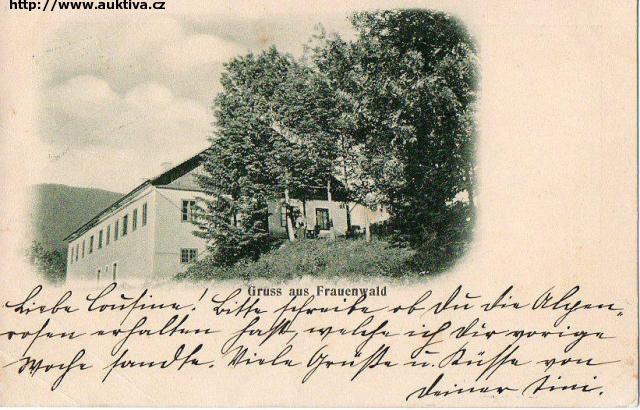 http://www.auktiva.cz
Gruss aus Frauenwald
Liebe Cousine! Bitte schreibe ob Du die Alpen-
rosen erhalten hast, welche ich Dir vorige
Woche sandte. Viele Grüße u. Küsse von
Deiner Tini.